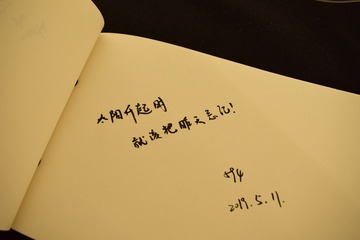 太阳升起时
就该把昨天忘记!
2019.5.11.